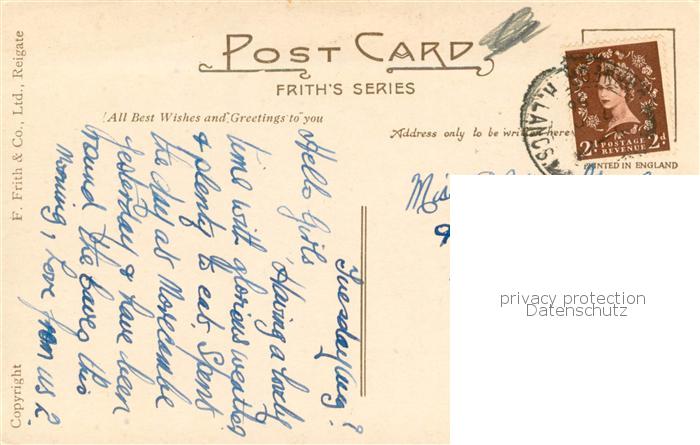 POST CARD
FRITH'S SERIES
"All Best Wishes and Greetings to you"
Address only to be written here
PRINTED IN ENGLAND
2d POSTAGE REVENUE 2d
H. LANCS
Miss
Tuesday Aug. ?
Hello Girls
Having a lovely
time with glorious weather
& plenty to eat. Spent
the day at Morecambe
yesterday & have been
round the Caves this
morning, Love from us 2.
F. Frith & Co., Ltd., Reigate
Copyright
privacy protection
Datenschutz